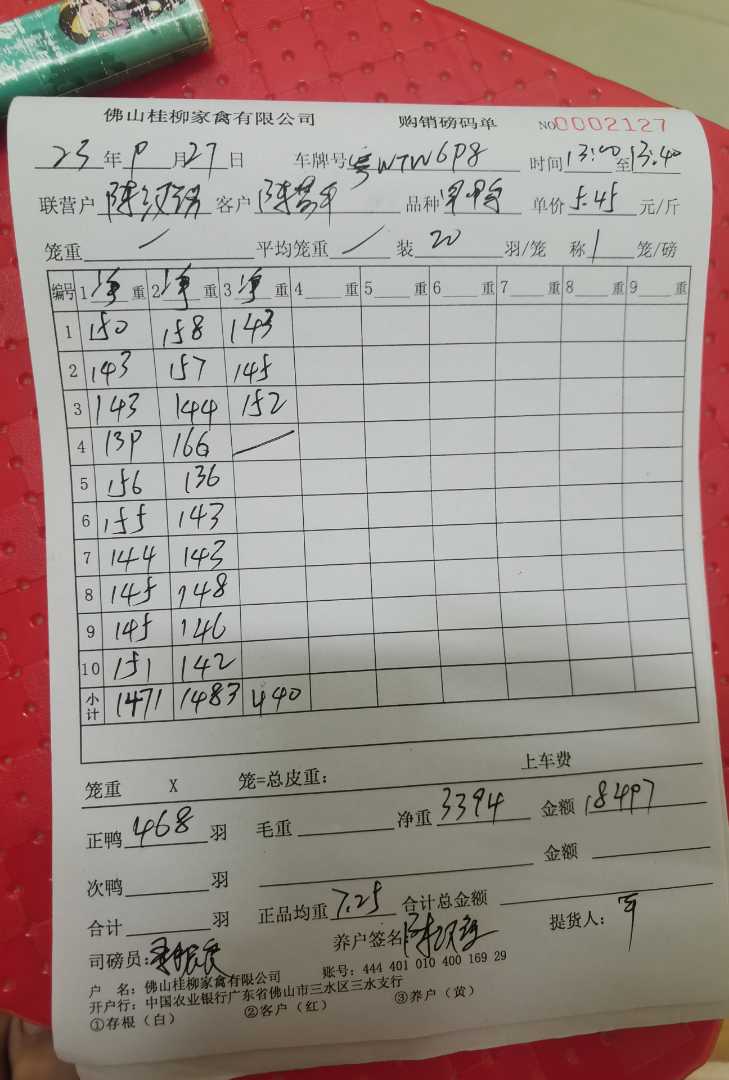 佛山桂柳家禽有限公司 购销磅码单 NO0002127
23年9月27日 车牌号粤WTW698 时间13:00至13:40
联营户 客户陈 品种 单价5.45元/斤
笼重/ 平均笼重/ 装20羽/笼 称1笼/磅
编号 1净重 2净重 3净重 4重 5重 6重 7重 8重 9重
1 150 158 143
2 143 157 145
3 143 144 152
4 139 166 /
5 156 136
6 155 143
7 144 143
8 145 148
9 145 146
10 151 142
小计 1471 1483 440
上车费
笼重 X 笼=总皮重:
正鸭468羽 毛重 净重3394 金额18497
次鸭羽 金额
合计羽 正品均重7.25 合计总金额
司磅员: 养户签名 提货人:
户 名: 佛山桂柳家禽有限公司 账号: 444 401 010 400 169 29
开户行: 中国农业银行广东省佛山市三水区三水支行
①存根(白) ②客户(红) ③养户(黄)